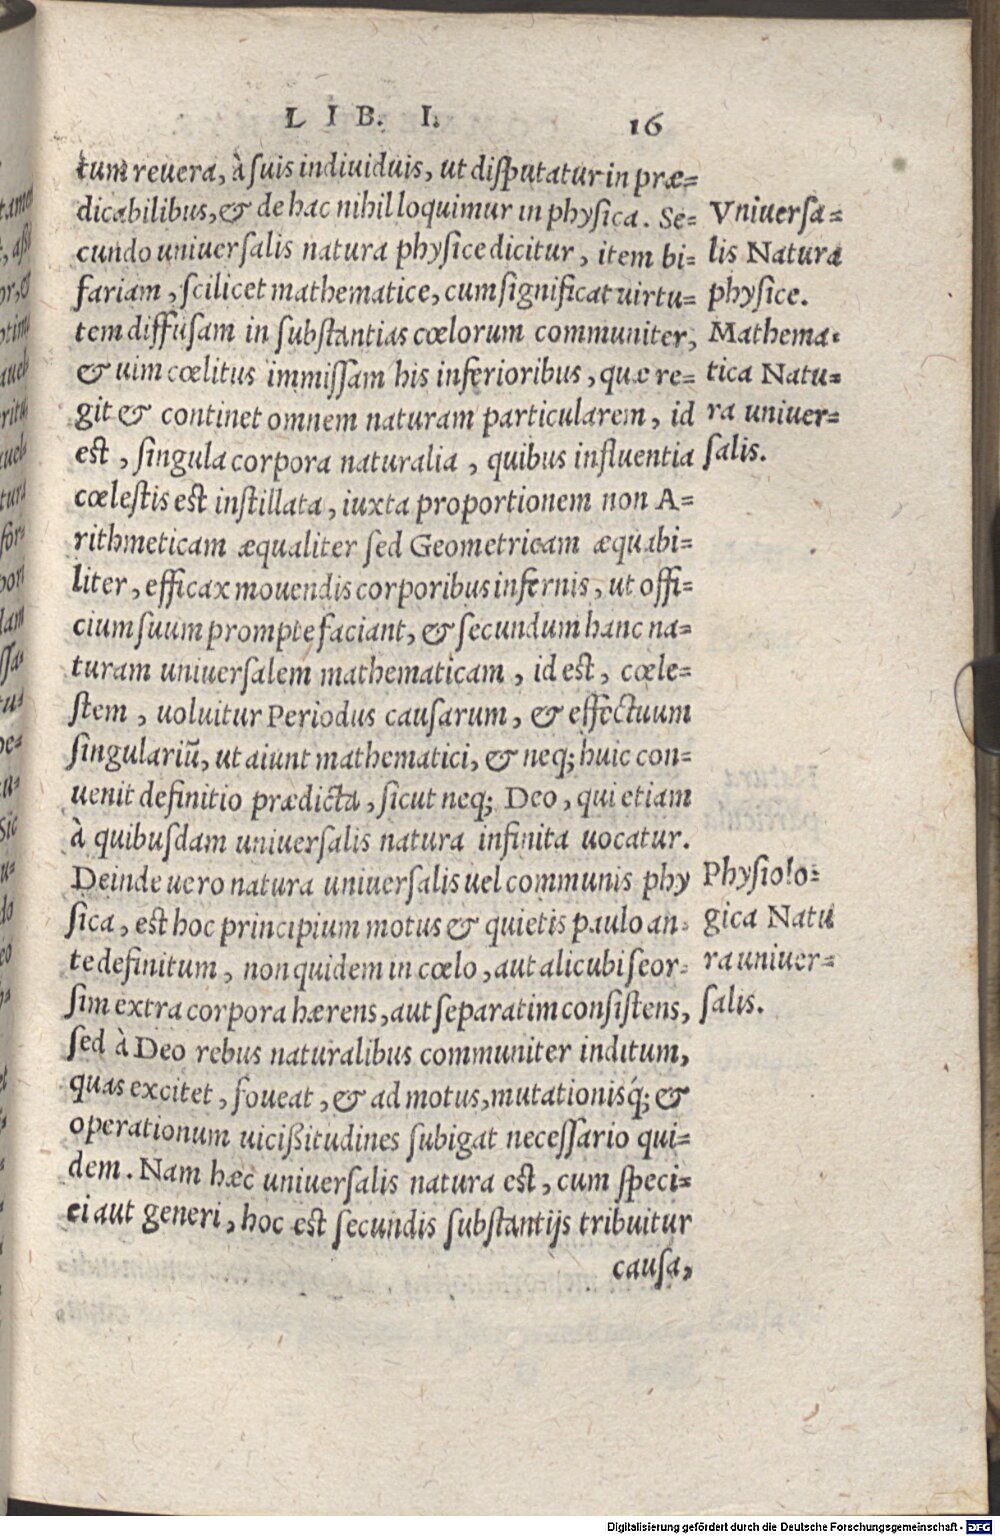 LIB. I. 16
tum reuera, à suis indiuiduis, ut disputatur in præ=
dicabilibus, & de hac nihil loquimur in physica. Se=
cundo uniuersalis natura physice dicitur, item bi=
fariam, scilicet mathematice, cum significat uirtu=
tem diffusam in substantias cœlorum communiter,
& uim cœlitus immissam his inferioribus, quæ re=
git & continet omnem naturam particularem, id
est, singula corpora naturalia, quibus influentia
cœlestis est instillata, iuxta proportionem non A=
rithmeticam æqualiter sed Geometricam æquabi=
liter, efficax mouendis corporibus infernis, ut offi=
cium suum prompte faciant, & secundum hanc na=
turam uniuersalem mathematicam, id est, cœle=
stem, uoluitur Periodus causarum, & effectuum
singulariũ, ut aiunt mathematici, & neq; huic con=
uenit definitio prædicta, sicut neq; Deo, qui etiam
à quibusdam uniuersalis natura infinita uocatur.
Deinde uero natura uniuersalis uel communis phy
sica, est hoc principium motus & quietis paulo an=
te definitum, non quidem in cœlo, aut alicubi seor=
sim extra corpora hærens, aut separatim consistens,
sed à Deo rebus naturalibus communiter inditum,
quas excitet, foueat, & ad motus, mutationisq́; &
operationum uicißitudines subigat necessario qui=
dem. Nam hæc uniuersalis natura est, cum speci=
ei aut generi, hoc est secundis substantijs tribuitur
causa,
Vniuersa=
lis Natura
physice.
Mathema=
tica Natu=
ra uniuer=
salis.
Physiolo=
gica Natu
ra uniuer=
salis.
Digitalisierung gefördert durch die Deutsche Forschungsgemeinschaft - DFG